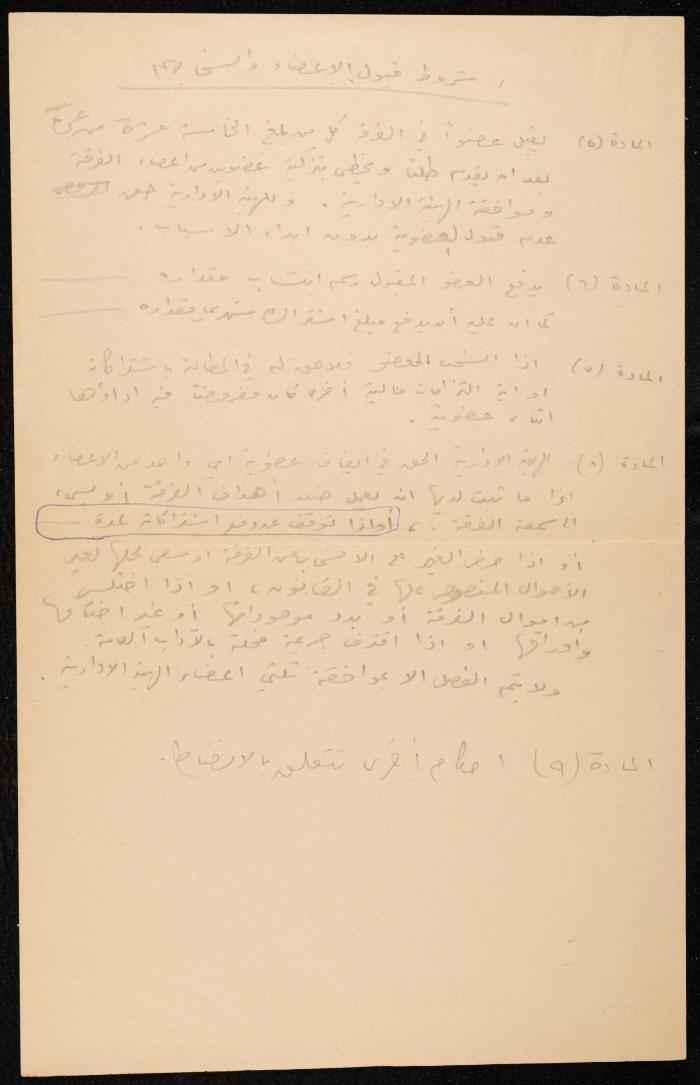 شروط قبول الاعضاء وانسحابهم
المادة (٥) يقبل عضواً في الفرقة كل من بلغ الخامسة عشرة من عمره
بعد ان يقدم طلباً ويحظى بتزكية عضوين من اعضاء الفرقة
وموافقة الهيئة الادارية . وللهيئة الادارية حق
عدم قبول العضوية بدون ابداء الاسباب .
المادة (٦) يدفع العضو المقبول رسم انتساب مقداره
كما ان عليه أن يدفع مبلغ اشتراك شهري مقداره
المادة (٧) اذا انسحب العضو فلا حق له في المطالبة باشتراكاته
او اية التزامات مالية أخرى كان مفروضاً فيه اداؤها
اثناء عضويته .
المادة (٨) للهيئة الادارية الحق في ايقاف عضوية اي واحد من الاعضاء
اذا ما ثبت لديها انه يعمل ضد أهداف الفرقة أو يسيء
الى سمعة الفرقة . ، أو اذا توقف عن دفع اشتراكاته لمدة
أو اذا حرض الغير على الانسحاب من الفرقة او سعى لحلها لغير
الأحوال المنصوص عليها في القانون ، او اذا اختلس
من اموال الفرقة أو بدد موجوداتها أو غير اختامها
واوراقها او اذا اقترف جريمة مخلة بالآداب العامة .
ولا يتم الفصل الا بموافقة ثلثي اعضاء الهيئة الادارية .
المادة (٩) احكام أخرى تتعلق بالانضباط .